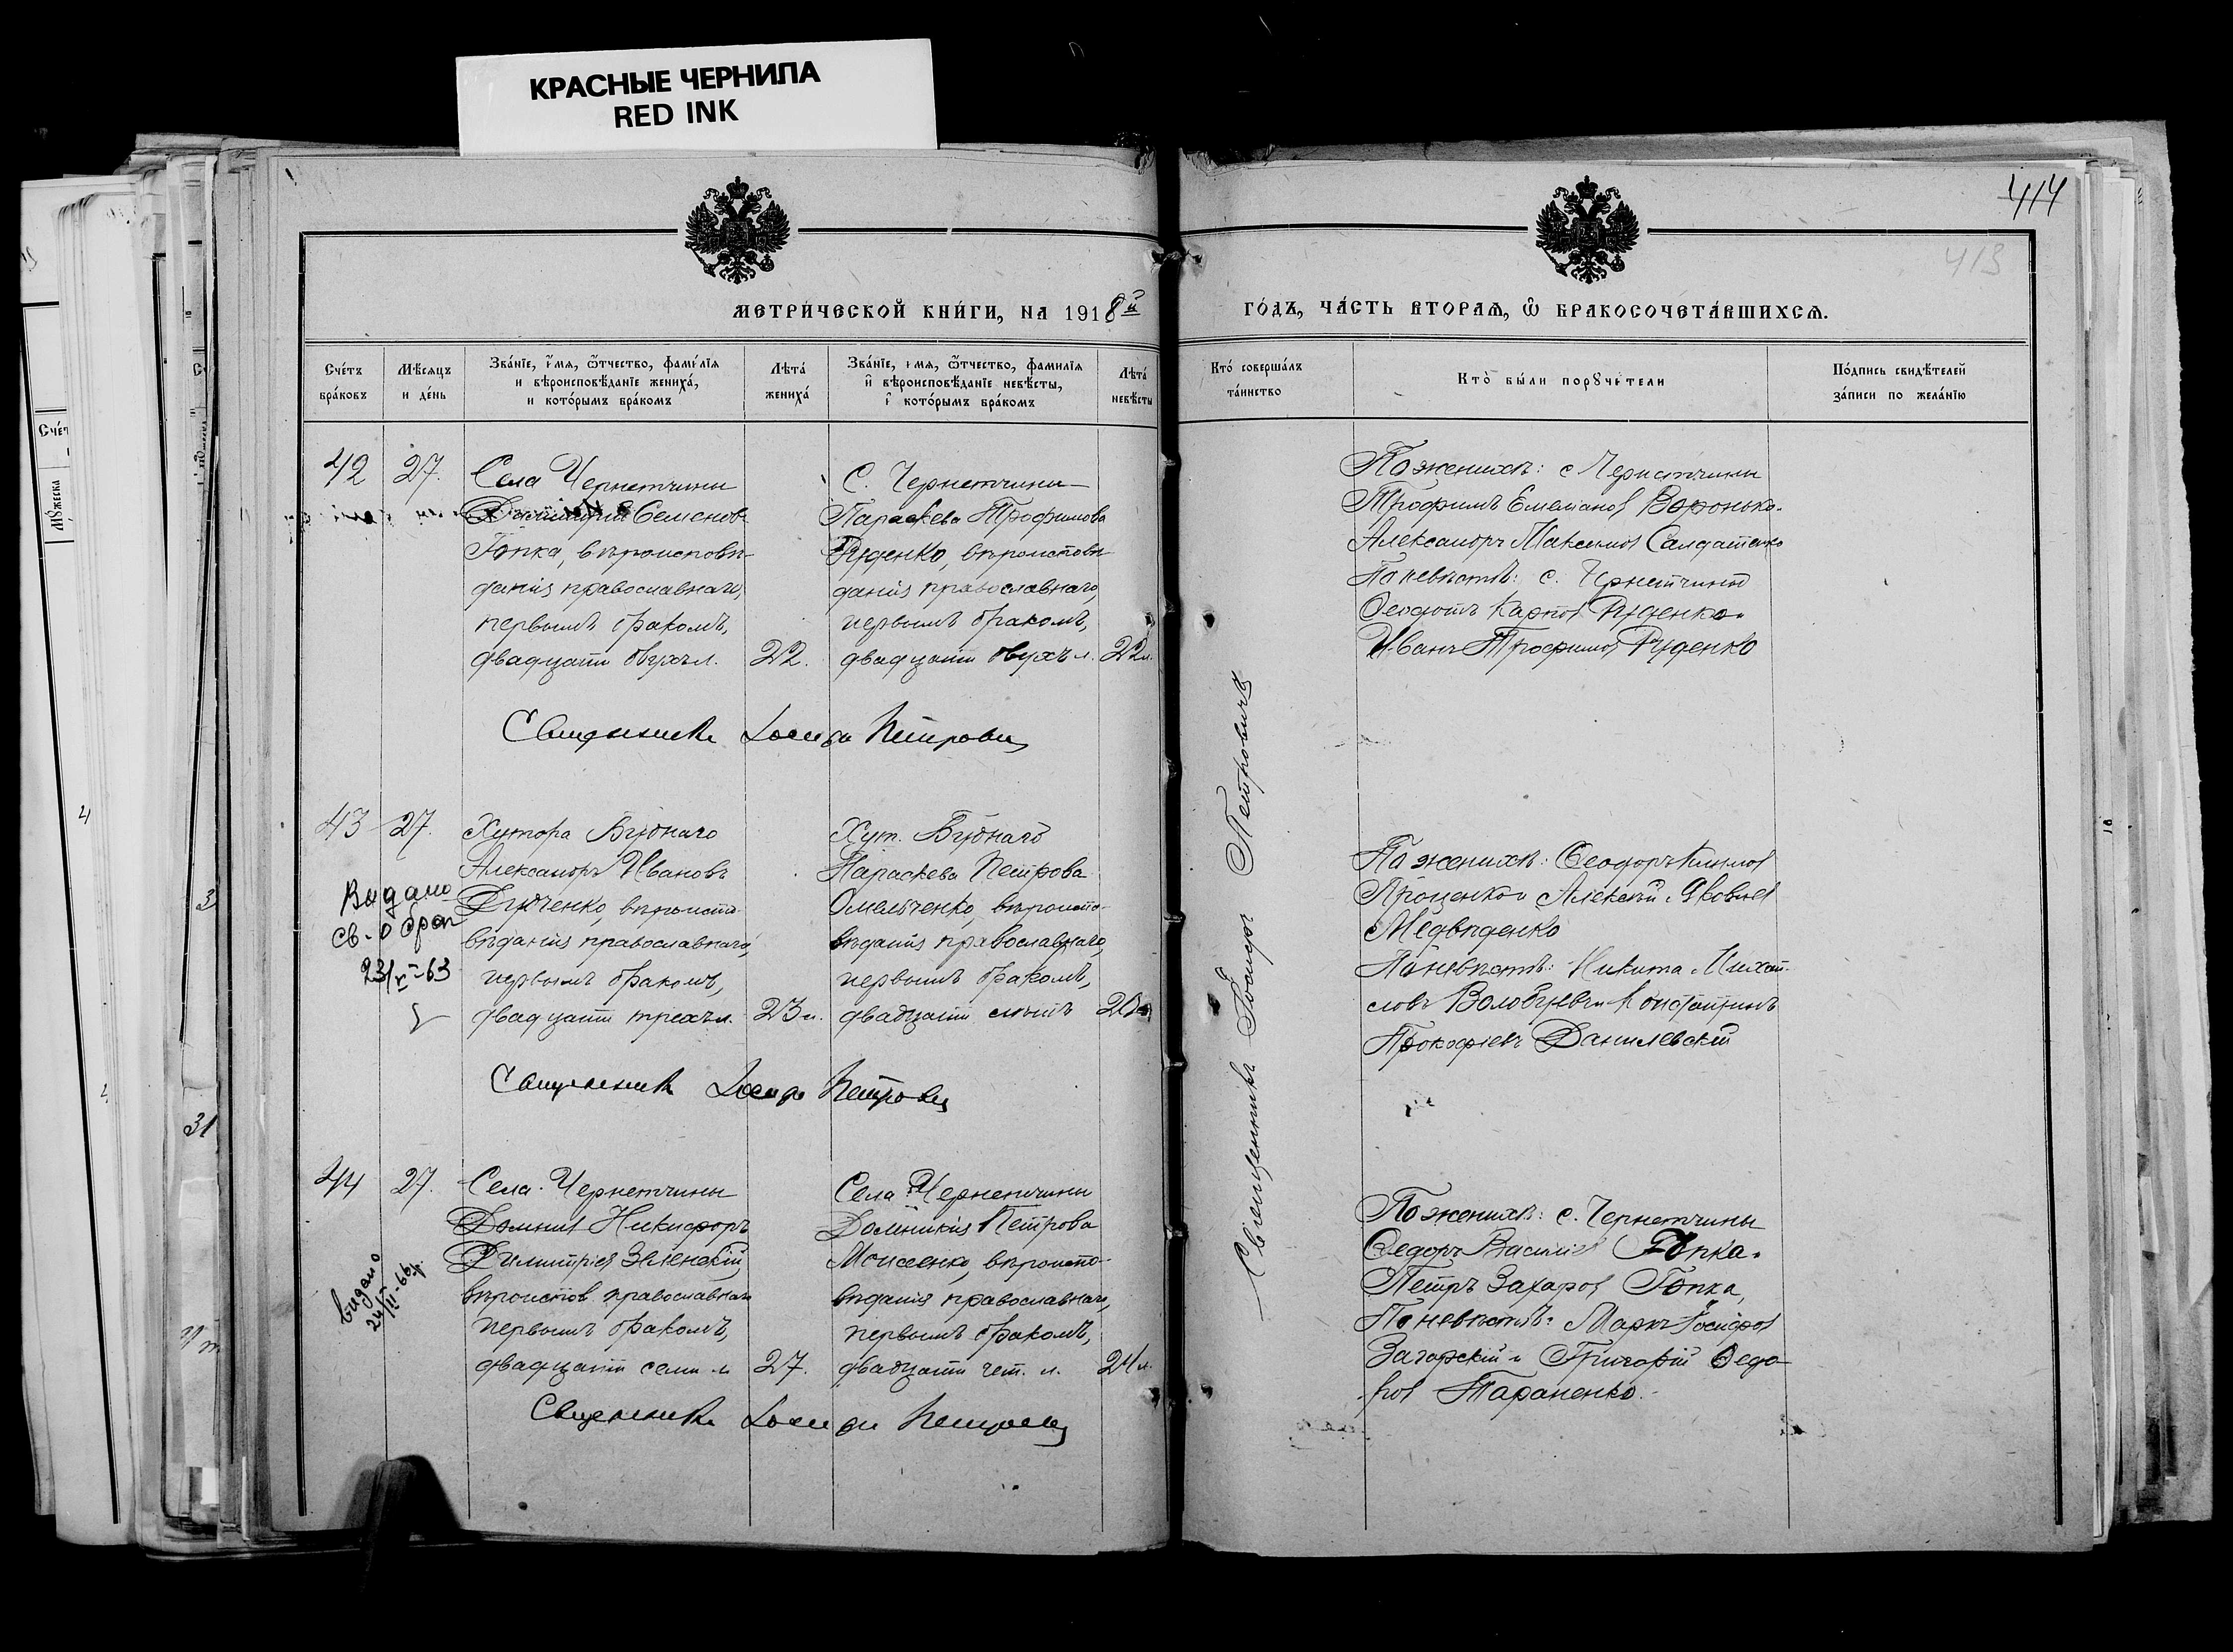 КРАСНЫЕ ЧЕРНИЛА
RED INK
414
413
МЕТРИ́ЧЕСКОЙ КНИ́ГИ, НА 1918й
ГО́ДЪ, ЧА́СТЬ ВТОРАѦ, Ѿ БРАКОСОЧЕТА́ВШИХСѦ.
Сче́тъ бра́ковъ
Мѣ́сяцъ и де́нь
Зва́нїе, и́мѧ, ѻ҆́тчество, фами́лїѧ и вѣроисповѣ́данїе жениха́, и кото́рымъ бра́комъ
Лѣта́ жениха́
Зва́нїе, и́мѧ, ѻ҆́тчество, фамилїѧ и҆ вѣроисповѣ́данїе невѣ́сты, и҆ кото́рымъ бра́комъ
Лѣта́ невѣ́сты
Кто́ соверша́лъ та́инство
Кто̀ бы́ли порꙋчи́тели
По́дпись свидѣ́телей за́писи по жела́нїю
42
27.
Села Чернетчины
Димитрій Семенов
Гопка, вѣроисповѣ-
данія православнаго,
первымъ бракомъ,
двадцати двухъ л.
22.
С. Чернетчины
Параскева Трофимова
Руденко, вѣроисповѣ-
данія православнаго,
первымъ бракомъ,
двадцати двухъ л.
22 л.
По женихѣ: с Чернетчины
Трофимъ Емелianов Воронько.
Александръ Максимов Салдатенко
По невѣстѣ: с. Чернетчины
Феодотъ Карпов Руденко и
Иванъ Трофимов Руденко
Священникъ Іосифъ Петровичъ
43
27.
Хутора Вуднаго
Александръ Ивановъ
Дудченко, вѣроиспо-
вѣданія православнаго,
первымъ бракомъ,
двадцати трехъ л.
23 л.
Хут. Вуднаго
Параскева Петрова
Омельченко, вѣроиспо-
вѣданія православнаго,
первымъ бракомъ,
двадцати
Видано
св. о брак
23/V-63
По женихѣ: Феодоръ Климов
Проценко и Алексѣй Яковлев
Медвѣденко
По невѣстѣ: Никита Михай-
ловъ Волобуевъ и Константинъ
Прокофіевъ Данилевскій
Священникъ Іосифъ Петровичъ
44
27.
Села Чернетчины
Никифоръ
Димитріев Зеленскій,
вѣроиспов. православнаго
первымъ бракомъ,
двадцати семи л.
27.
Села Чернетчины
Домникія Петрова
Моисеенко, вѣроиспо-
вѣданія православнаго,
первымъ бракомъ,
двадцати чет. л.
24 л.
видано
По женихѣ: с. Чернетчины
Федоръ Васил. Гопка и
Петръ Захаров Гопка,
По невѣстѣ: Маркъ Іосифов
Загорскій и Григорій Федо-
ров Тараненко.
Священникъ Іосифъ Петровичъ
Священникъ Іосифъ Петровичъ